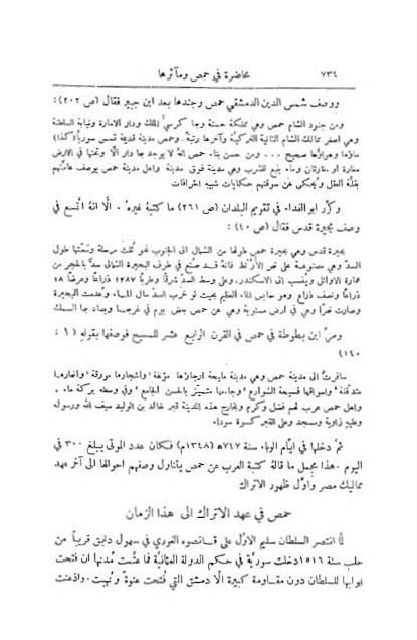 ٧٣٤ محاضرة في حمص ومآثرها
ووصف شمس الدين الدمشقي حمص وجندها بعد ابن جبير فقال (ص ٢٠٢):
ومن جنود الشام حمص وهي مملكة حسنة وبها كرسي ذلك ودار الامارة ونيابة السلطنة
وهي اصغر ممالك الشام الثانية التركية وآخرها رتبة. وحمص مدينة قديمة قصص سوريا (كذا)
ماؤها وهواؤها صحيح ... ومن حسن بناء حمص انه لا يوجد بها دار الا وتحتها في الارض
مغارة او مغارتان وماء ينبع للشرب وهي مدينة فوق مدينة واهل مدينة حمص يوصف عامتهم
بقلة العقل ويحكى عن سوقتهم حكايات شبيه الخرافات
وكرر ابو الفداء في تقويم البلدان (ص ٢٦١) ما كتبه غيره. الا انه اتسع في
وصف بحيرة قدس فقال (ص ٤٠):
بحيرة قدس وهي بحيرة حمص طولها من الشمال الى الجنوب نحو ثلث مرحلة وسعتها طول
السد وهي مصنوعة على نهر الأرنط فانه قد صنع في طرف البحيرة الشمالي سد بالحجر من
عمارة الاوائل وينسب الى الاسكندر. وعلى وسط السد شرقا وطولا ١٢٨٧ ذراعا وعرضا ١٨
ذراعا ونصف ذراع وهو حابس لذلك الماء العظيم بحيث لو خرب السد سال الماء. وعدمت البحيرة
وصارت نهرا وهي في ارض مستوية وهي عن حمص بعض يوم في غربها ويصاد بها السمك
ومر ابن بطوطة في حمص في القرن الرابع عشر للمسيح فوصفها بقوله (١:
١٤٠)
سافرت الى مدينة حمص وهي مدينة مليحة ارجاؤها مونقة، واشجارها مورقة، وانهارها
متدفقة، واسواقها فسيحة الشوارع، وجامعها متميز بالحسن الجامع، وفي وسطه بركة ماء.
واهل حمص عرب لهم فضل وكرم وبخارج هذه المدينة قبر خالد بن الوليد سيف الله ورسوله
وعليه زاوية ومسجد وعلى القبر كسوة سوداء
ثم دخلها في ايام الوباء سنة ٧٤٧ه (١٣٤٨م) فكان عدد الموتى يبلغ ٣٠٠ في
اليوم. هذا مجمل ما قاله كتبة العرب عن حمص يتناول وصفهم احوالها الى آخر عهد
مماليك مصر واول ظهور الاتراك
حمص في عهد الاتراك الى هذا الزمان
لما انتصر السلطان سليم الاول على قانصوه الغوري في سهول دابق قريبا من
حلب سنة ١٥١٦ دخلت سورية في حكم الدولة العثمانية فما همت مدنها ان فتحت
ابوابها للسلطان دون مقاومة كبيرة الا دمشق التي فتحت عنوة ونهبت. واذعنت